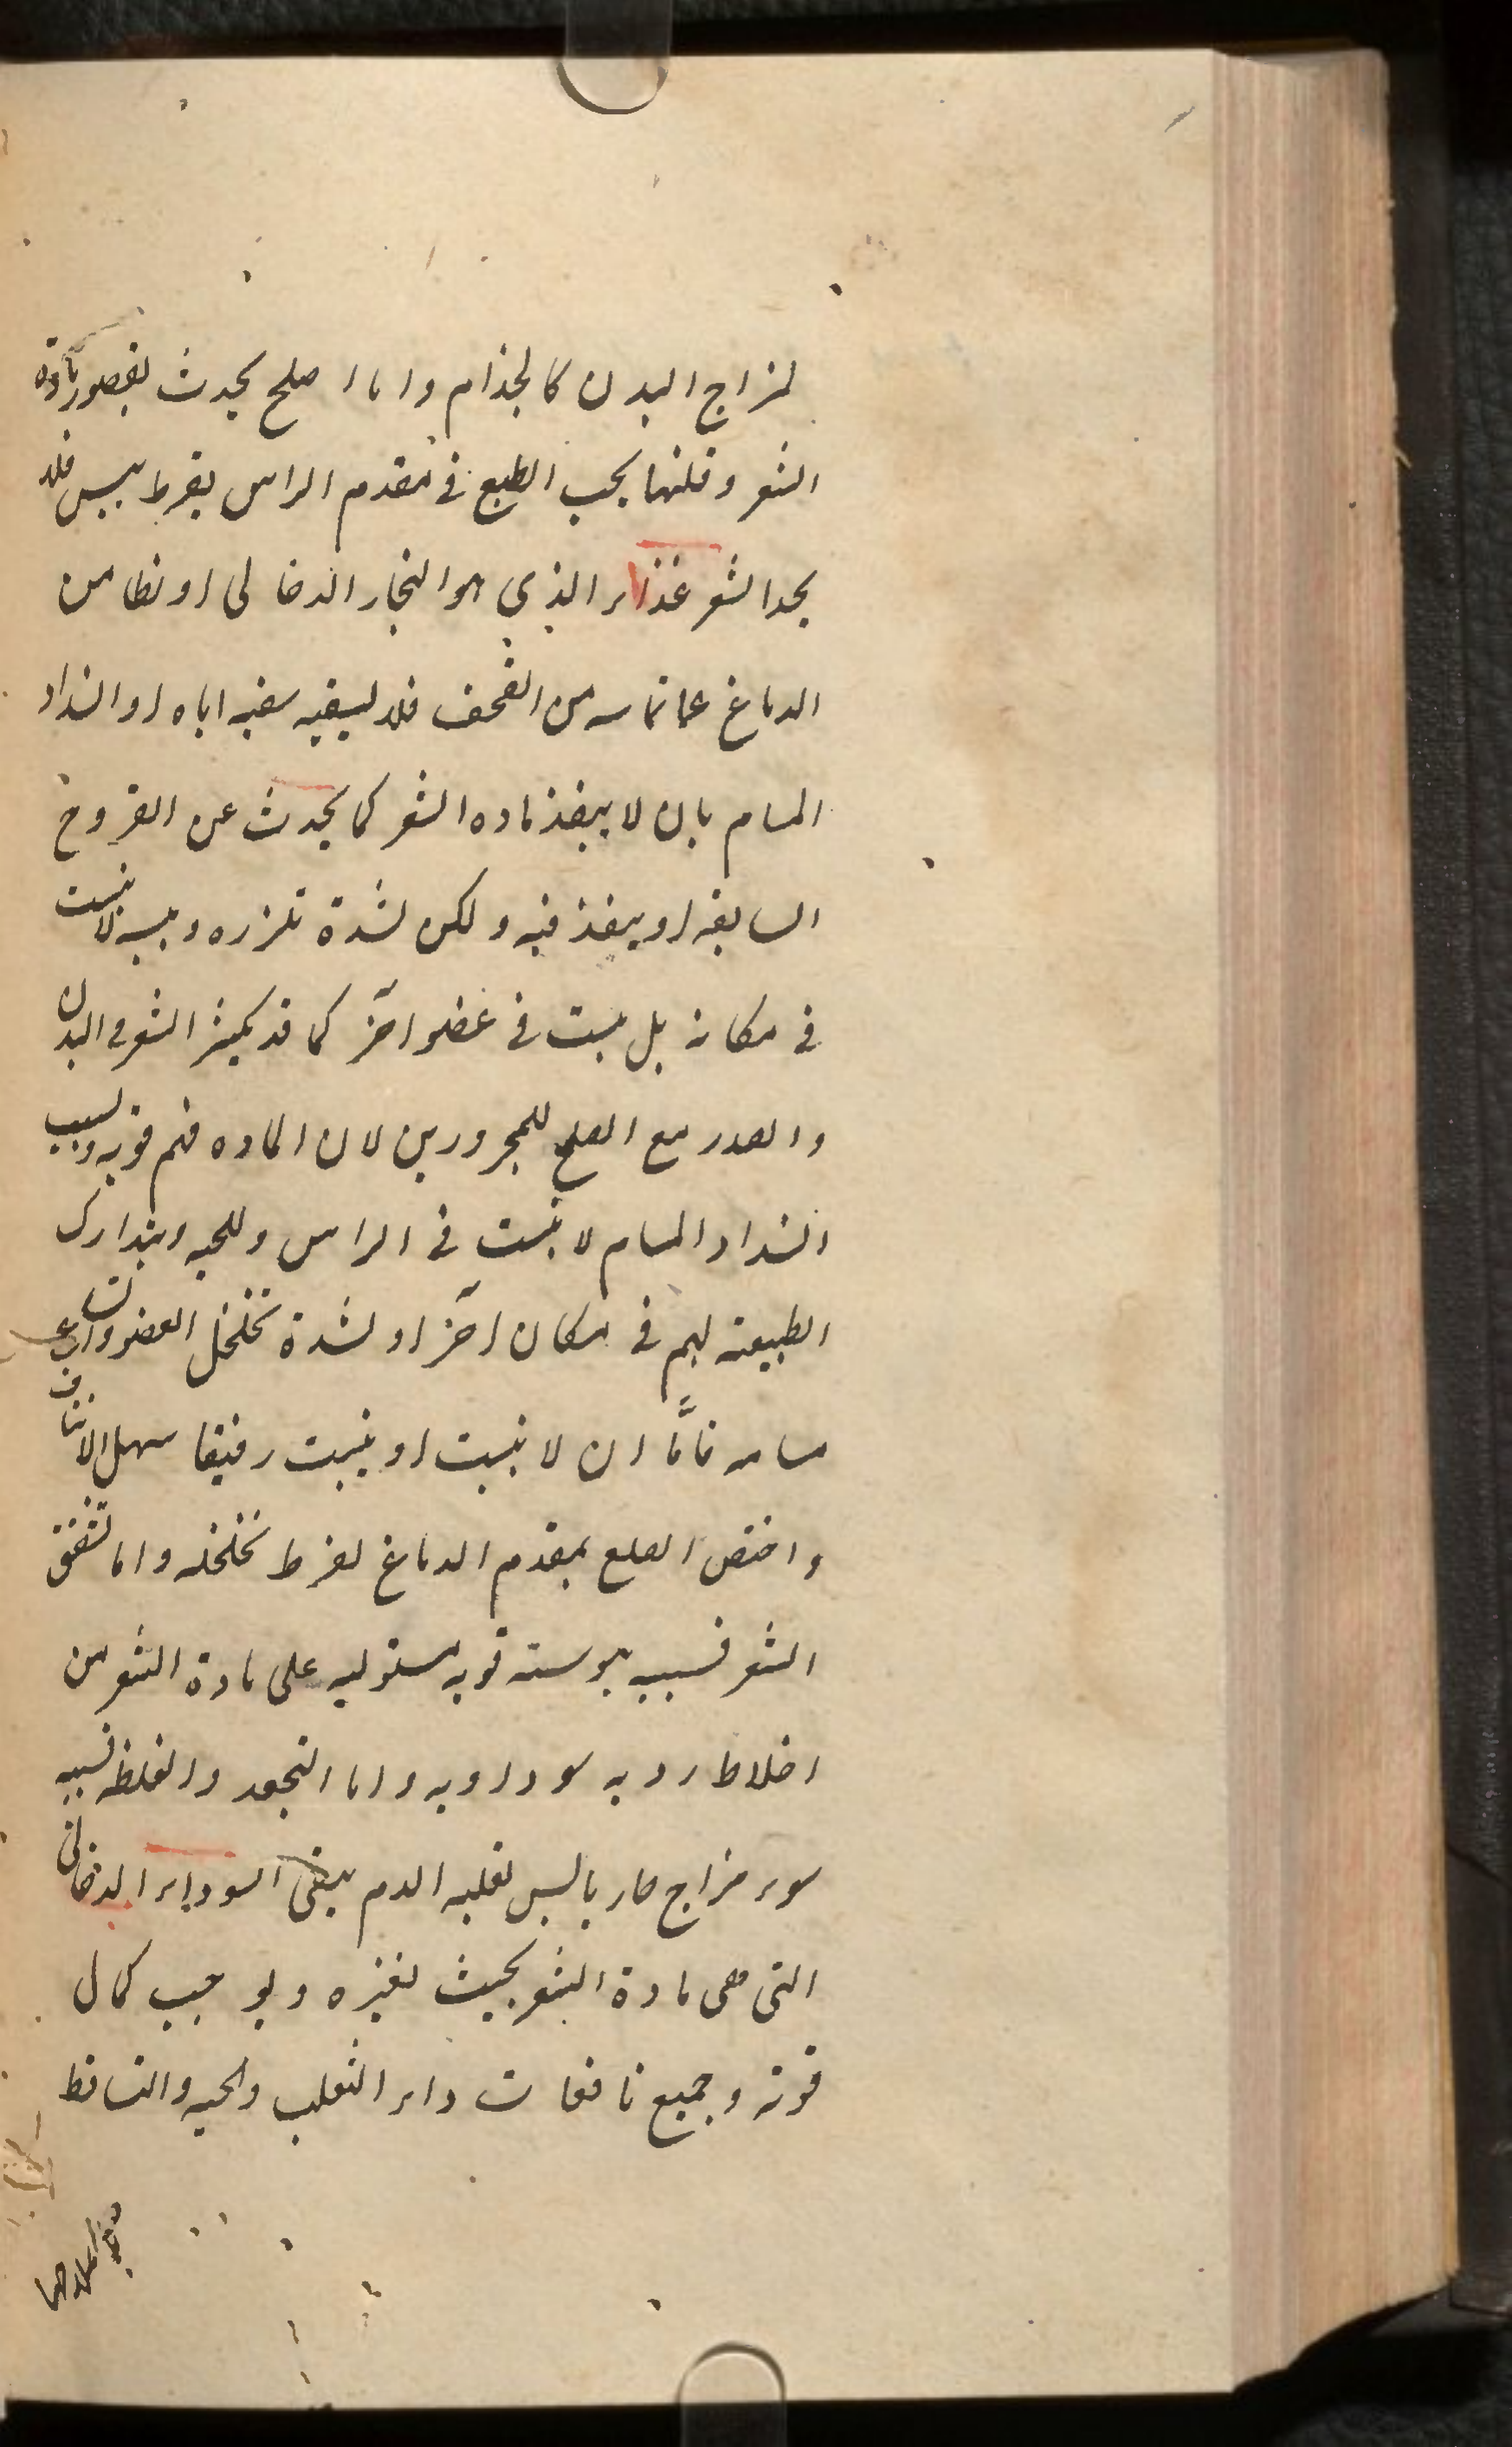 لمزاج البدن كالجذام واما اصلح يحدث لقصور مادة
الشعر وقلتها بحسب الطبع في مقدم الراس بفرط يبس فلا
يجد الشعر غذاء الذي هو البخار الدخاني او نطامن
الدماغ عما تماسه من القحف فلا يسقيه سقيه اياه او انسداد
المسام بان لا ينفذ ماده الشعر كما يحدث عن القروح
السابقه او ينفذ فيه ولكن لشدة تلززه ويبسه لا ينبت
في مكانه بل ينبت في عضو آخر كما قد يكثر الشعر في البدن
والصدر مع الصلع للمحرورين لان الماده فيهم قويه وبسبب
انسداد المسام لا ينبت في الراس واللحيه ويتدارك
الطبيعة لهم في مكان آخر او لشدة تخلخل العضو واتساع
مسامه فامّا ان لا ينبت او ينبت رقيقا سهل الانتتاف
واختص الصلع بمقدم الدماغ لفرط تخلخله واما تشقق
الشعر فسببه يبوسة قويه مستوليه على مادة الشعر من
اخلاط رديه سوداويه واما التجعد والغلظ فسببه
سوء مزاج حار يابس لغلبه الدم يبقى السوداء الدخاني
التي هي مادة الشعر بحيث لغيره ويوجب كمال
قوته وجميع نافعات داء الثعلب والحيه والتساقط